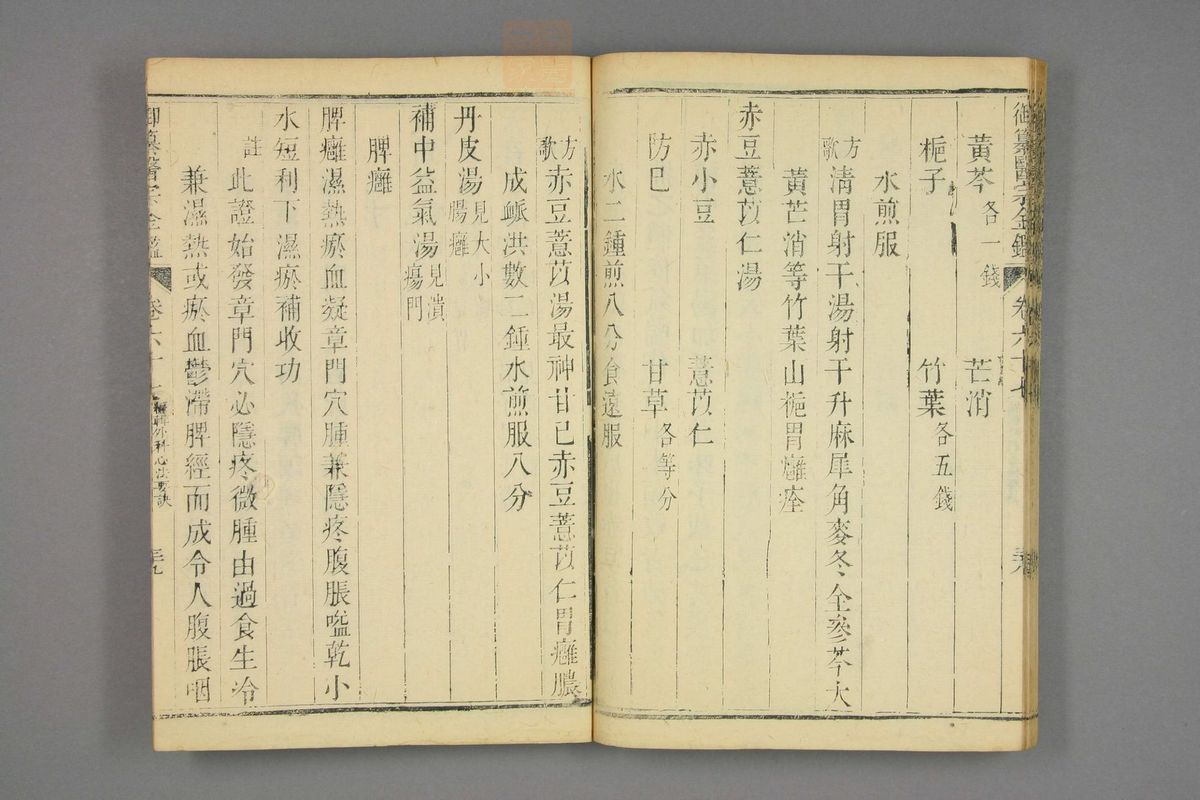 御纂醫宗金鑑 卷六十七
黃芩各一錢 芒消
梔子 竹葉各五錢
水煎服
方歌 清胃射干湯射干升麻犀角麥冬全參芩大
黃芒消等竹葉山梔胃癰痊
赤豆薏苡仁湯
赤小豆 薏苡仁
防巳 甘草各等分
水二鍾煎八分食遠服
方歌 赤豆薏苡湯最神甘巳赤豆薏苡仁胃癰膿
成脈洪數二鍾水煎服八分
丹皮湯見大小腸癰
補中益氣湯見潰瘍門
脾癰
脾癰濕熱瘀血凝章門穴腫兼隱疼腹脹嗌乾小
水短利下濕瘀補收功
註 此證始發章門穴必隱疼微腫由過食生冷
兼濕熱或瘀血鬱滯脾經而成令人腹脹咽
御纂醫宗金鑑 卷六十七 編輯外科心法要訣 三九